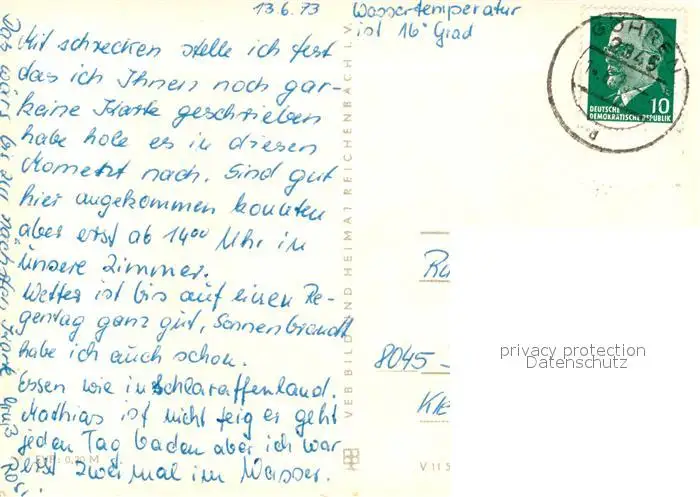 13.6.73
Wassertemperatur
ist 16° Grad
Mit schrecken stelle ich fest
das ich Ihnen noch gar-
keine Karte geschrieben
habe hole es in diesen
Moment nach. Sind gut
hier angekommen konnten
aber erst ab 14⁰⁰ Uhr in
unsere Zimmer.
Wetter ist bis auf einen Re-
gentag ganz gut, Sonnenbrandt
habe ich auch schon.
Essen wie in schlaraffenland.
Mathias ist nicht feig er geht
jeden Tag baden aber ich war
erst zweimal im Wasser.
Das wärs bis zur nächsten Gruß
EVP: 0,20 M
VEB BILD UND HEIMAT REICHENBACH I. V.
V 11 5
GÖHREN
2345
10
DEUTSCHE
DEMOKRATISCHE REPUBLIK
Ru
8045 -
Kle
privacy protection
Datenschutz